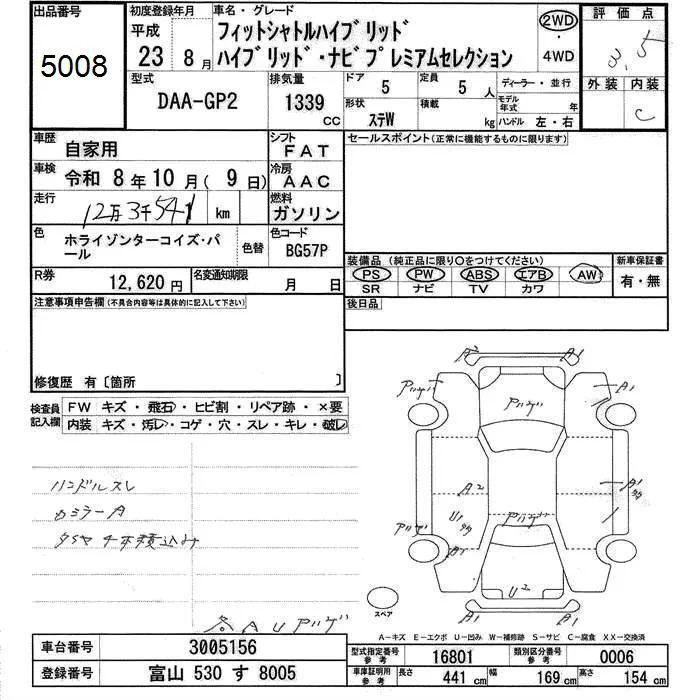 出品番号
5008
初度登録年月
平成
23 8月
車名・グレード
フィットシャトルハイブリッド
ハイブリッド・ナビプレミアムセレクション
2WD
・
4WD
評価点
3.5
外装 内装
C
型式
DAA-GP2
排気量
1339
CC
ドア
5
定員
5 人
形状
ステW
積載
kg
ディーラー・並行
モデル年式 年
ハンドル 左・右
車歴
自家用
シフト
FAT
車検
令和 8年10月( 9日)
冷房
AAC
走行
12万3千541 km
燃料
ガソリン
色
ホライゾンターコイズ・パール
色替
色コード
BG57P
R券
12,620円
名変通知期限
月 日
セールスポイント(正常に機能するものに限ります)
装備品 (純正品に限り○をつけてください)
PS PW ABS エアB AW
SR ナビ TV カワ
新車保証書
有・無
後日品
注意事項申告欄(不具合内容等は具体的に記入して下さい)
修復歴 有〔箇所 〕
検査員記入欄
FW キズ・飛石・ヒビ割・リペア跡・×要
内装 キズ・汚レ・コゲ・穴・スレ・キレ・破レ
ハンドルスレ
カミラーA
タイヤ4本積込み
各AUアリゲ
A2
A1
アリゲ
A1
アリゲ
A2
A1
U1
アリゲ
アリゲ
A1
U2
A1
A1
スペア
A-キズ E-エクボ U-凹み W-補修跡 S-サビ C-腐食 XX-交換済
車台番号
3005156
登録番号
富山 530 す 8005
型式指定番号
参考
16801
類別区分番号
参考
0006
車庫証明用
参考
長さ
441 cm
幅
169 cm
高さ
154 cm